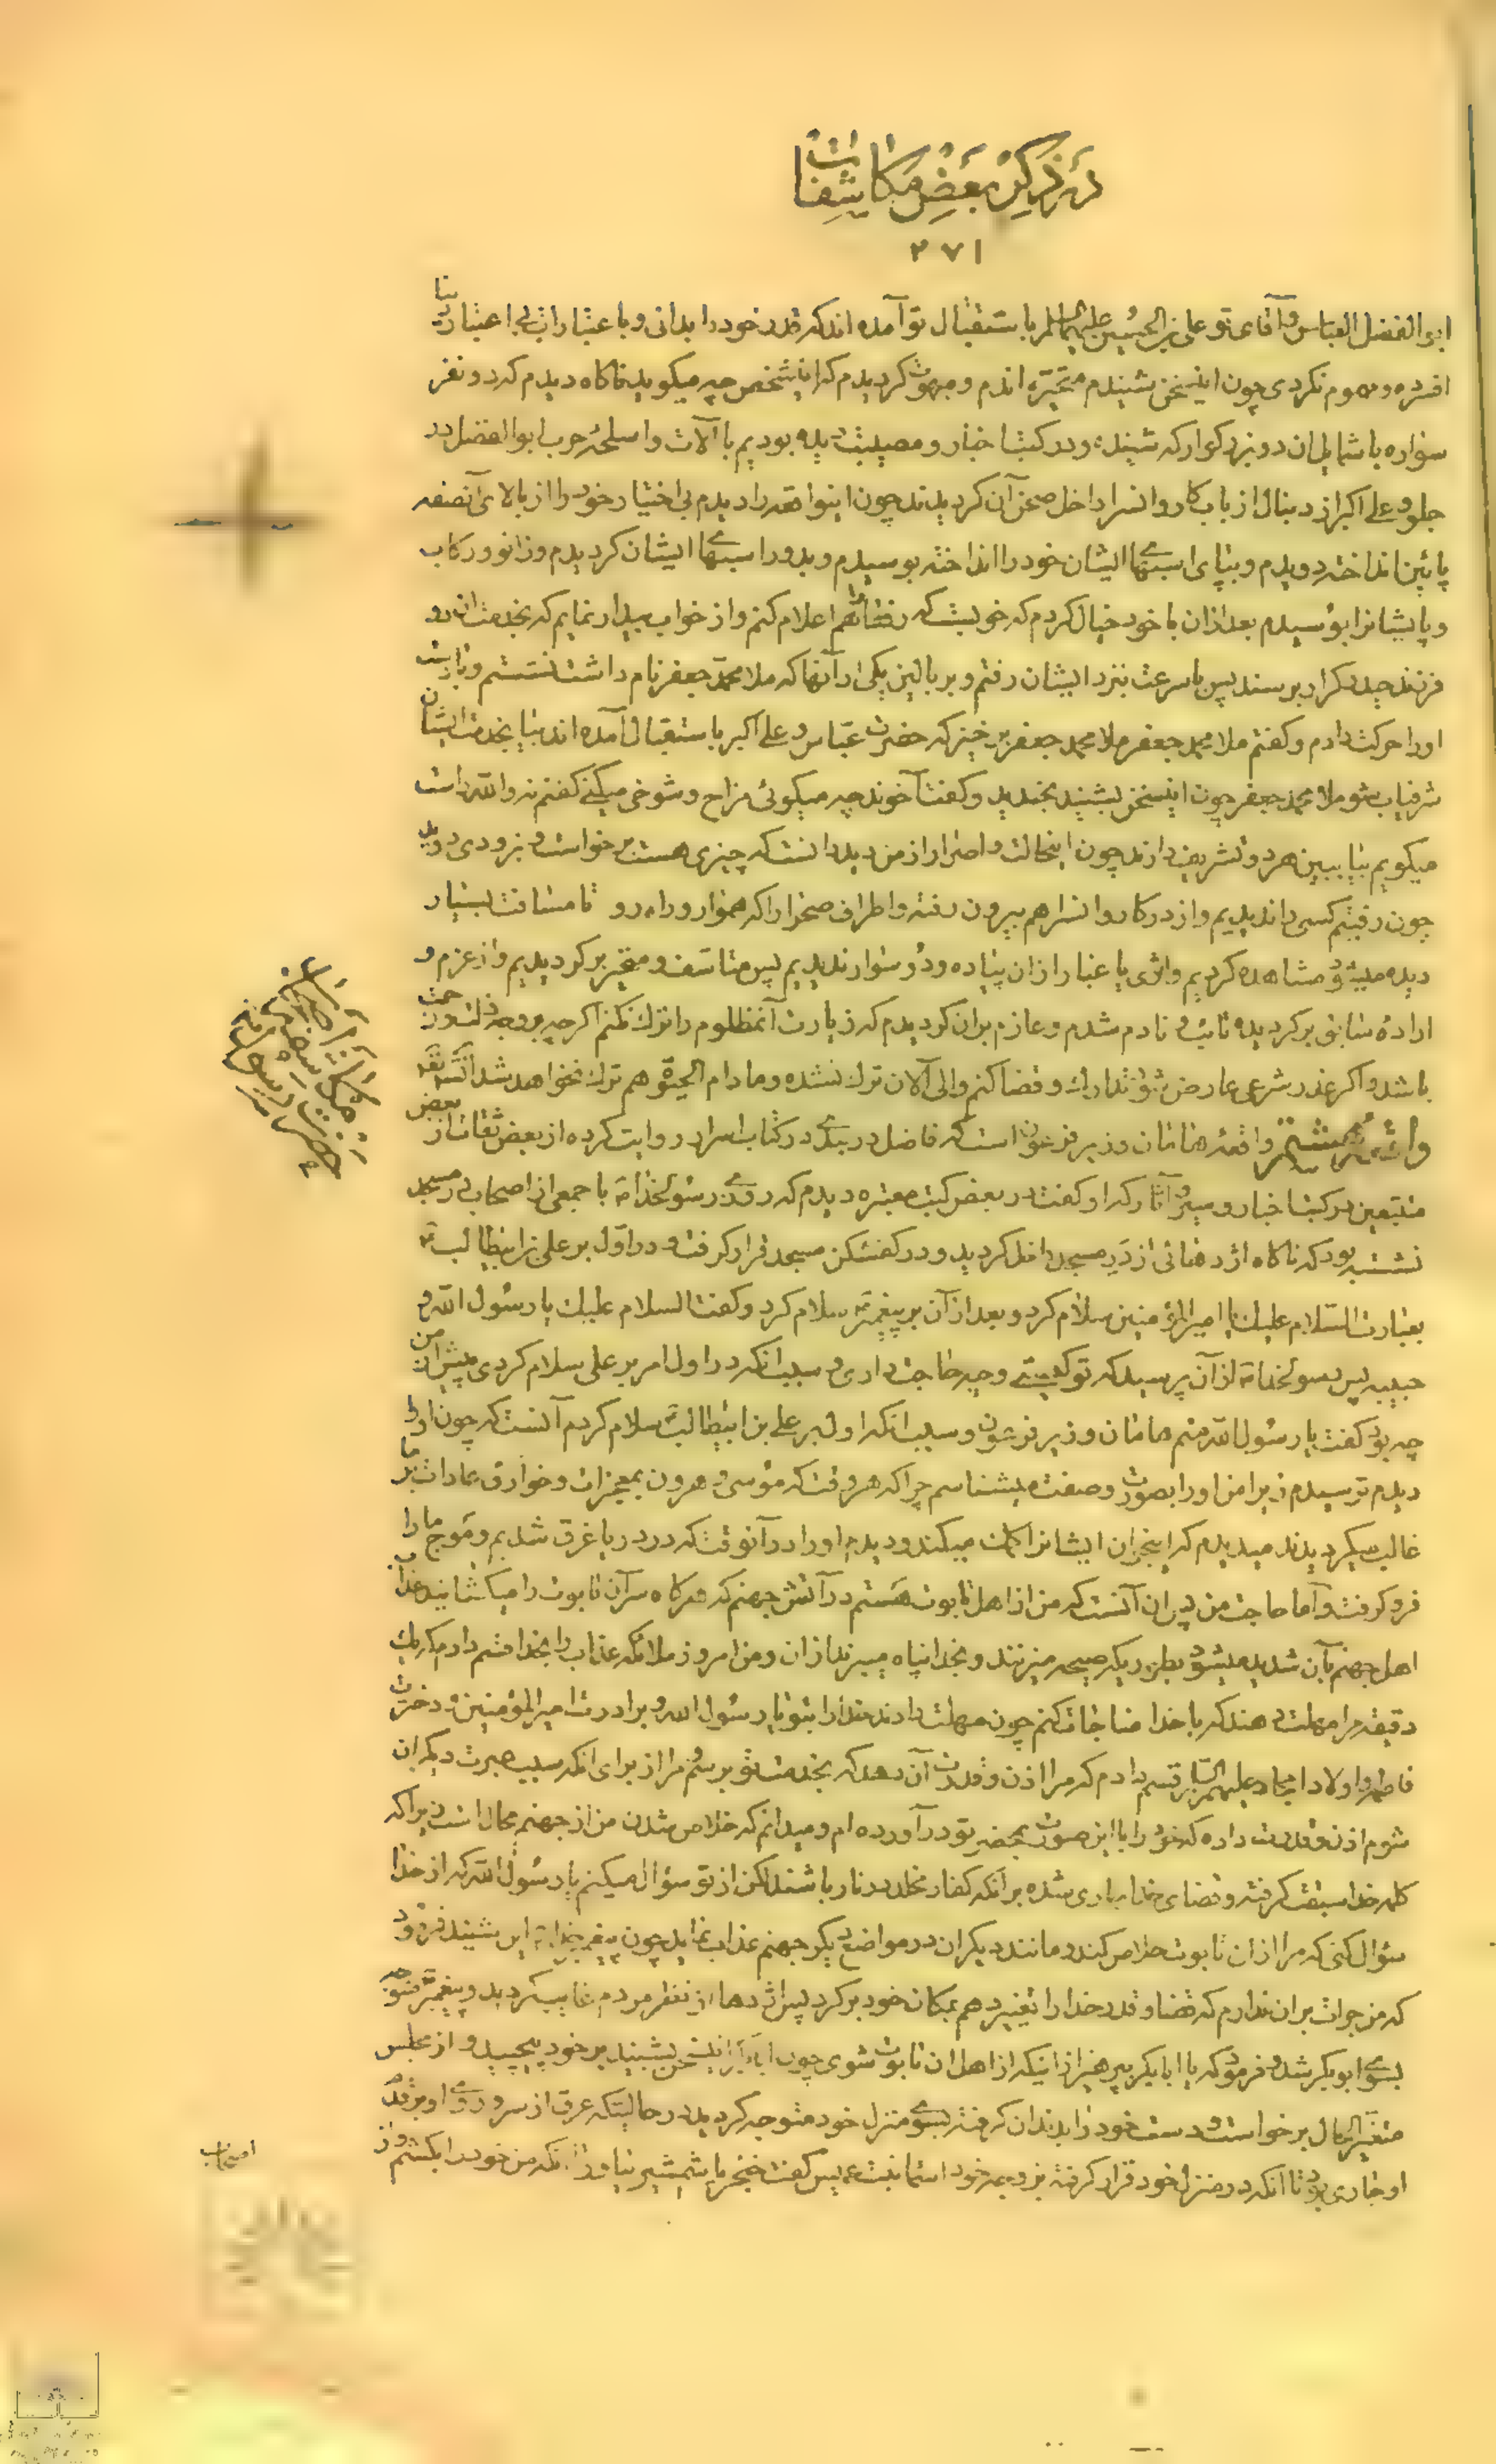 در ذکر بعض مکاشفات
۲۷۱
ابوالفضل العباس و آقای تو علی بن الحسین علیهما السلام باستقبال تو آمده اند که قدر خود را بدانی و باعتبارات بی اعتبار دنیا
افسرده و مهموم نکردی چون اینسخن شنیدم متحیر ماندم و مبهوت کردیدم که اینشخص چه میکوید ناکاه دیدم که دو نفر
سواره با شمایل آن دو بزرکوار که شنیده و در کتب اخبار و مصیبت دیده بودیم با آلات و اسلحهٔ حرب ابوالفضل در
جلو و علی اکبر از دنبال از باب کاروانسرا داخل صحن آن کردیدند چون اینواقعه را دیدم بی اختیار خود را از بالای آنصفه
پائین انداخته دویدم و بپای اسبهای ایشان خود را انداخته بوسیدم و بدور اسبهای ایشان کردیدم و زانو و رکاب
و پای ایشانرا بوسیدم بعد از آن با خود خیال کردم که خوبست که رفقا را هم اعلام کنم و از خواب بیدار نمایم که بخدمت این دو
فرزند حیدر کرار برسند پس با سرعت بنزد ایشان رفتم و بر بالین یکی از آنها که ملا محمد جعفر نام داشت نشستم و با دست
او را حرکت دادم و کفتم ملا محمد جعفر ملا محمد جعفر برخیز که حضرت عباس و علی اکبر باستقبال آمده اند بیا بخدمت ایشان
شرفیاب شو ملا محمد جعفر چون اینسخن بشنید بخندید و کفت آخوند چه میکوئی مزاح و شوخی میکنی کفتم نه والله راست
میکویم بیا ببین هر دو تشریف دارند چون اینحالت و اصرار از من دید دانست که چیزی هست برخواست و بزودی دوید
چون رفتیم کسی را ندیدیم و از در کاروانسرا هم بیرون رفته و اطراف صحرا را که هموار و راه رو تا مسافت بسیار
دیده میشود مشاهده کردیم و اثری یا غبار از آن پیاده و دو سوار ندیدیم پس متاسف و متحیر برکردیدیم و از عزم و
ارادهٔ سابق برکردیده تائب و نادم شدم و عازم بر آن کردیدم که زیارت آنمظلوم را ترک نکنم اکرچه بر وجه ذلت و زحمت
باشد و اکر عذر شرعی عارض شود تدارک و قضا کنم و الی الآن ترک نشده و مادام الحیوة هم ترک نخواهد شد انشاءالله
واقعهٔ هامان وزیر فرعون است که فاضل دربندی در کتاب اسرار روایت کرده از بعض ثقات از بعض
متتبعین در کتب اخبار و سیر و آثار که او کفت در بعض کتب معتبره دیدم که روزی رسولخدا ص با جمعی از اصحاب در مسجد
نشسته بود که ناکاه اژدهائی از در مسجد داخل کردید و در کفشکن مسجد قرار کرفت و در اول بر علی بن ابیطالب ع
بعبارت السلام علیک یا امیر المؤمنین سلام کرد و بعد از آن بر پیغمبر ص سلام کرد و کفت السلام علیک یا رسول الله و
حبیبه پس رسولخدا ص از آن پرسید که تو کیستی و چه حاجت داری و سبب آنکه در اول امر بر علی سلام کردی پیش از من
چه بود کفت یا رسول الله منم هامان وزیر فرعون و سبب آنکه اول بر علی بن ابیطالب ع سلام کردم آنست که چون او را
دیدم ترسیدم زیرا من او را بصورت و صفت میشناسم چرا که هر وقت که موسی و هرون بمعجزات و خوارق عادات بر ما
غالب میکردیدند میدیدم که اینجوان ایشانرا کمک میکند و دیدم او را در آنوقت که در دریا غرق شدیم و موج ما را
فرو کرفت و اما حاجت من پس آن آنست که من از اهل تابوت هستم در آتش جهنم که هرکاه سر آن تابوت را میکشایند عذاب
اهل جهنم بآن شدید میشود بطوریکه صیحه میزنند و بخدا پناه میبرند از آن و من امروز ملائکه عذاب را بخدا قسم دادم که یک
دقیقه مرا مهلت دهند که با خدا مناجات کنم چون مهلت دادند خدا را بتو یا رسول الله و برادرت امیر المؤمنین و دخترت
فاطمه و اولاد امجاد علیهم السلام قسم دادم که مرا اذن و قدرت آن دهد که بخدمت تو برسم مرا از برای آنکه سبب عبرت دیکران
شوم اذن و قدرت داده که خود را با این صورت بمحضر تو درآورده ام و میدانم که خلاص شدن من از جهنم محال است زیرا که
کلمه خدا سبقت کرفته و قضای خدا جاری شده بر آنکه کفار مخلد در نار باشند لکن از تو سؤال میکنم یا رسول الله که از خدا
سؤال کنی که مرا از آن تابوت خلاص کند و مانند دیکران در مواضع دیکر جهنم عذاب نماید چون پیغمبر خدا ص این شنید فرمود
که من جرات بر آن ندارم که قضا و قدر خدا را تغییر دهم بمکان خود برکرد پس اژدها از نظر مردم غایب کردید و پیغمبر ص متوجه
بسوی ابوبکر شد و فرمود که یا ابابکر بپرهیز از اینکه از اهل آن تابوت شوی چون اینسخن بشنید بر خود پیچید و از مجلس
متغیر الحال برخواست و دست خود را بدندان کرفته بسوی منزل خود متوجه کردید در حالتیکه عرق از سر و روی او بر قدم
او جاری بود تا آنکه در منزل خود قرار کرفته بزوجه خود اسماء بنت عمیس کفت خنجر یا شمشیر بیاور تا آنکه من خود را بکشم و از